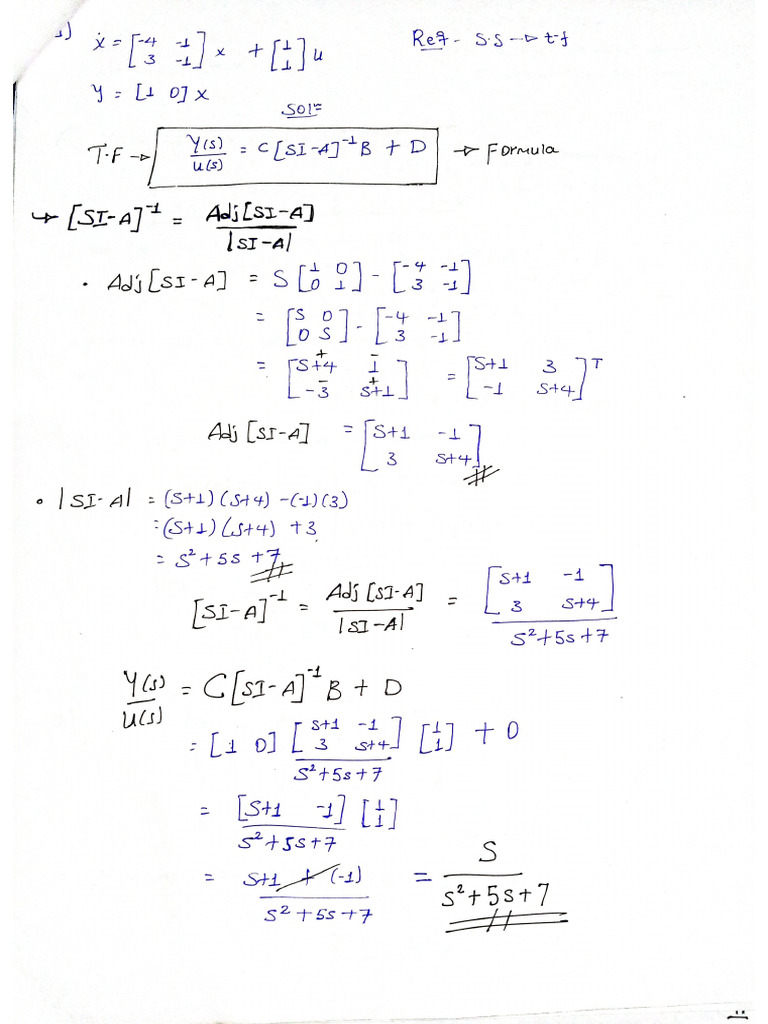 1) ẋ = [-4 -1; 3 -1] x + [1; 1] u Req - S.S → t.f
y = [1 0] x
Solⁿ
T.F → Y(s)/U(s) = C[SI-A]⁻¹B + D → Formula
↪ [SI-A]⁻¹ = Adj[SI-A] / |SI-A|
• Adj[SI-A] = S[1 0; 0 1] - [-4 -1; 3 -1]
= [S 0; 0 S] - [-4 -1; 3 -1]
= [S+4 1; -3 S+1] = [S+1 3; -1 S+4]ᵀ
Adj[SI-A] = [S+1 -1; 3 S+4]
• |SI-A| = (S+1)(S+4) - (-1)(3)
= (S+1)(S+4) + 3
= S² + 5S + 7
[SI-A]⁻¹ = Adj[SI-A] / |SI-A| = [S+1 -1; 3 S+4] / S²+5S+7
Y(s)/U(s) = C[SI-A]⁻¹B + D
= [1 0] [S+1 -1; 3 S+4] / S²+5S+7 [1; 1] + 0
= [S+1 -1] / S²+5S+7 [1; 1]
= S+1 + (-1) / S²+5S+7 = S / S²+5S+7